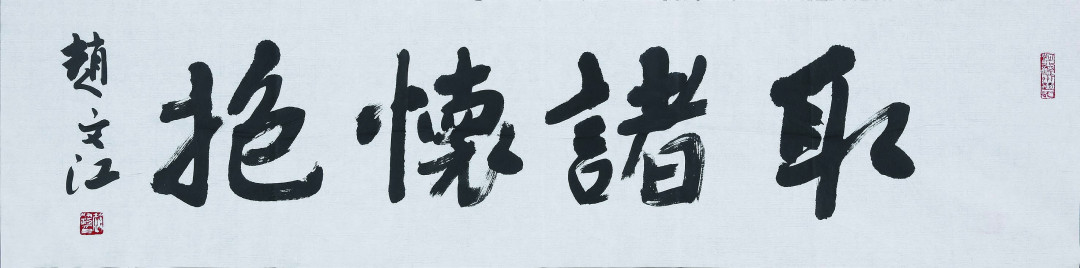 取諸懷抱
趙文江